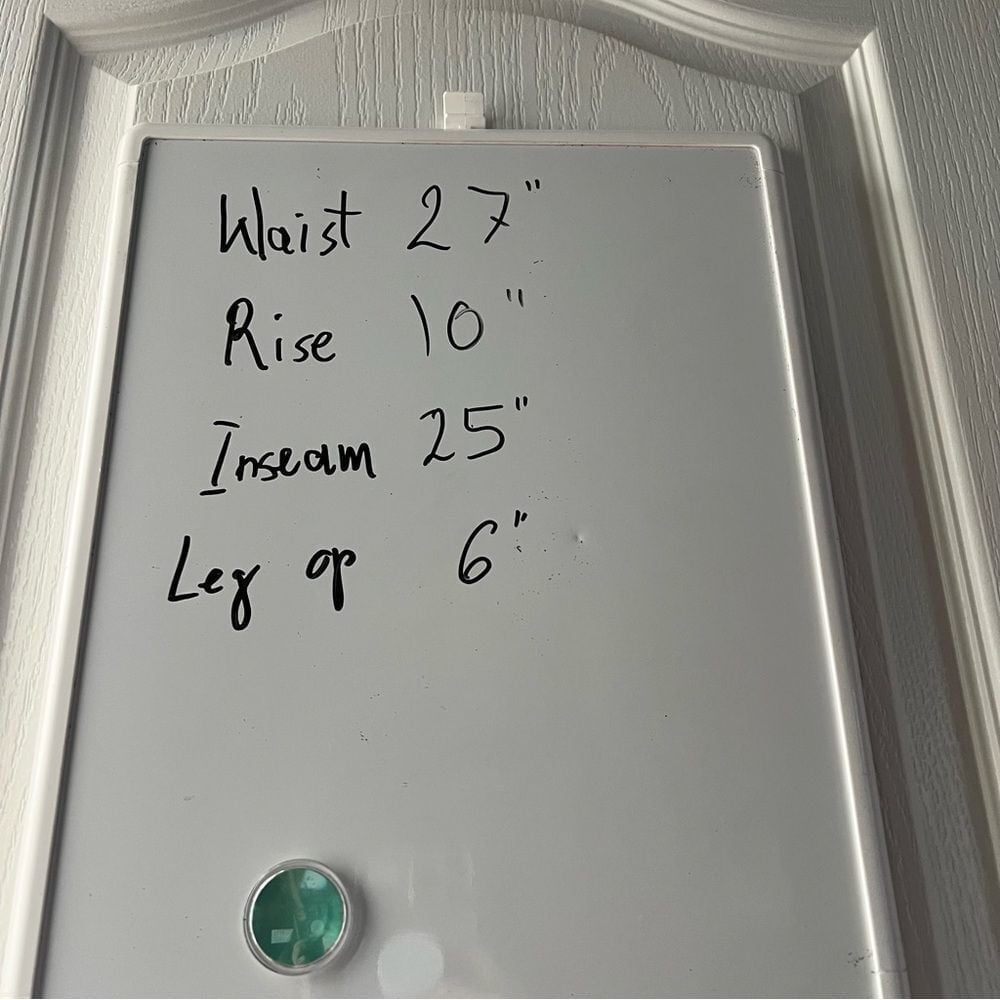 Waist 27"
Rise 10"
Inseam 25"
Leg op 6"